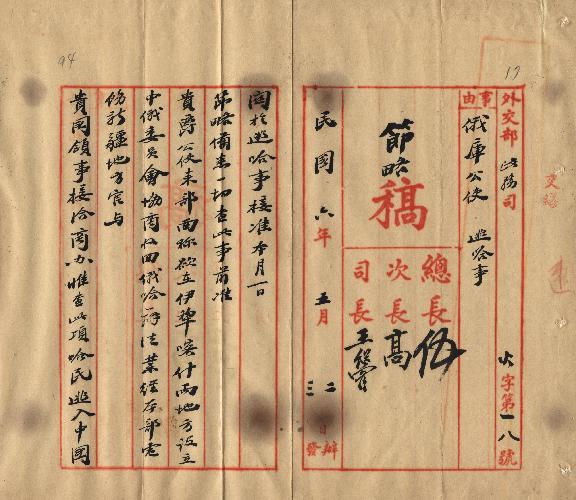 17
外交部 政務司 火字第一八號
事由
俄庫公使 逃哈事
節略稿
總長 伍
次長 高
司長 王
民國六年五月二三日辦發
94
關於逃哈事接准本月一日
節略備悉一切查此事前准
貴爵公使来部面称欲在伊犂喀什兩地方設立
中俄委員會協商收回俄哈辦法業經本部電
飭新疆地方官与
貴国領事接洽商办惟查此項哈民逃入中國